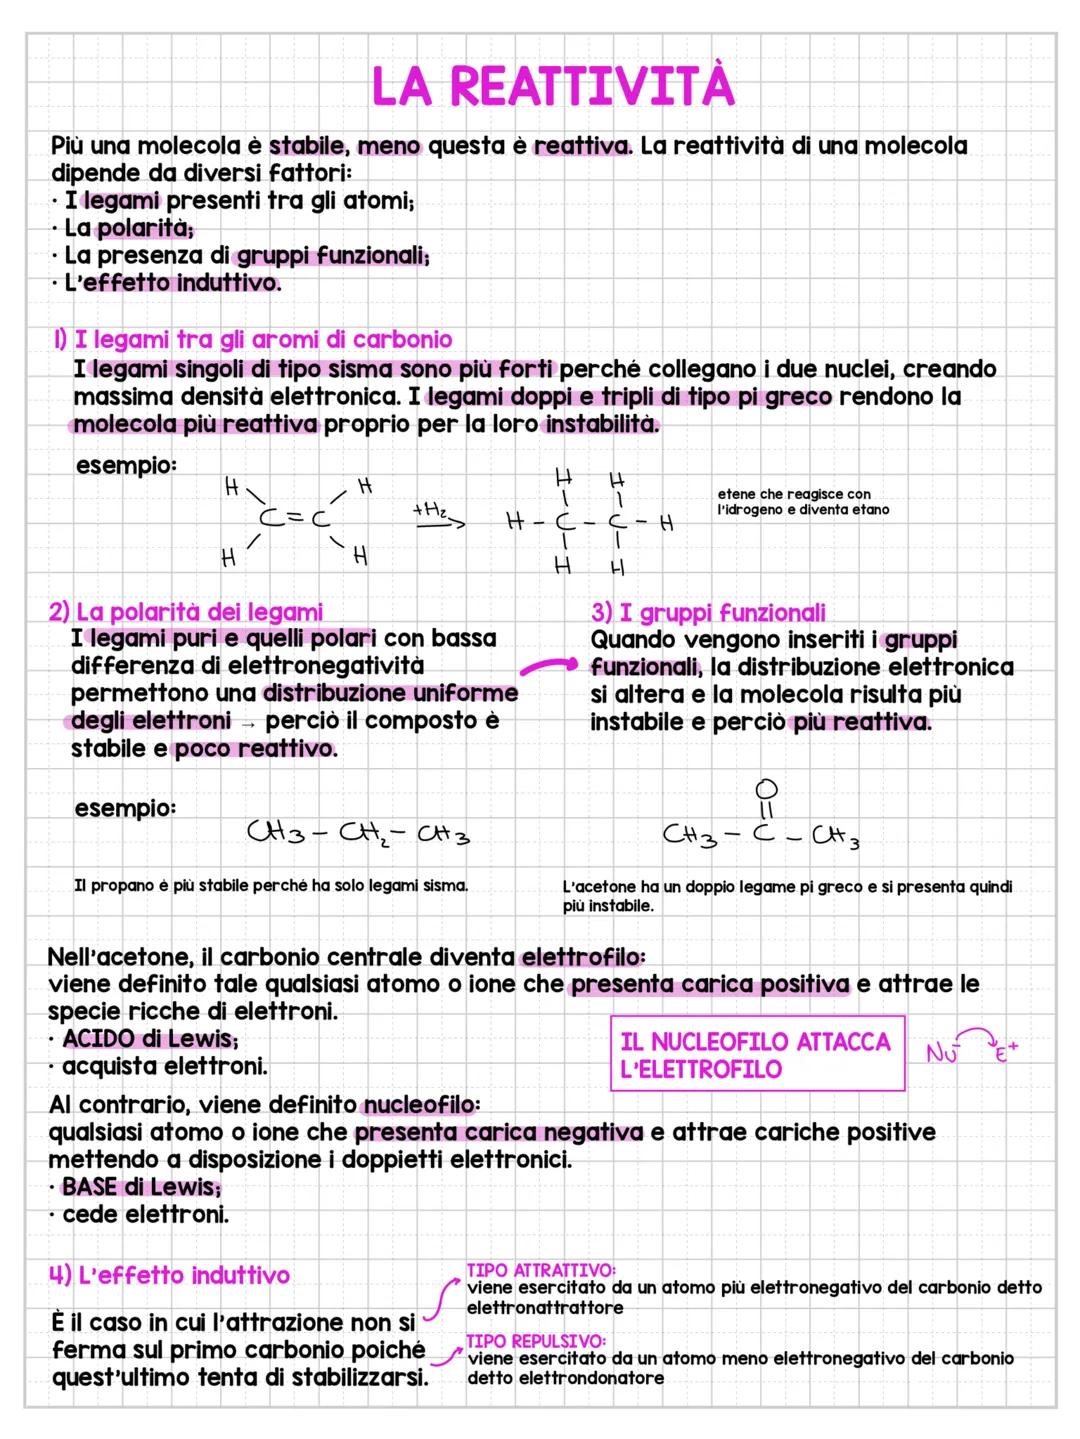 LA REATTIVITÀ
Più una molecola è stabile, meno questa è reattiva. La reattività di una molecola
dipende da diversi fattori:
· I legami presenti tra gli atomi;
· La polarità;
· La presenza di gruppi funzionali;
· L'effetto induttivo.
1) I legami tra gli aromi di carbonio
I legami singoli di tipo sisma sono più forti perché collegano i due nuclei, creando
massima densità elettronica. I legami doppi e tripli di tipo pi greco rendono la
molecola più reattiva proprio per la loro instabilità.
esempio:
H H
C=C
H H
+H₂
H H
H-C-C-H
H H
etene che reagisce con
l'idrogeno e diventa etano
2) La polarità dei legami
I legami puri e quelli polari con bassa
differenza di elettronegatività
permettono una distribuzione uniforme
degli elettroni → perciò il composto è
stabile e poco reattivo.
3) I gruppi funzionali
Quando vengono inseriti i gruppi
funzionali, la distribuzione elettronica
si altera e la molecola risulta più
instabile e perciò più reattiva.
esempio:
CH3-CH₂-CH3
O
CH3-C-CH3
Il propano è più stabile perché ha solo legami sisma.
L'acetone ha un doppio legame pi greco e si presenta quindi
più instabile.
Nell'acetone, il carbonio centrale diventa elettrofilo:
viene definito tale qualsiasi atomo o ione che presenta carica positiva e attrae le
specie ricche di elettroni.
· ACIDO di Lewis;
· acquista elettroni.
IL NUCLEOFILO ATTACCA
L'ELETTROFILO
Nu⁻ E⁺
Al contrario, viene definito nucleofilo:
qualsiasi atomo o ione che presenta carica negativa e attrae cariche positive
mettendo a disposizione i doppietti elettronici.
· BASE di Lewis;
· cede elettroni.
4) L'effetto induttivo
È il caso in cui l'attrazione non si
ferma sul primo carbonio poiché
quest'ultimo tenta di stabilizzarsi.
TIPO ATTRATTIVO:
viene esercitato da un atomo più elettronegativo del carbonio detto
elettronattrattore
TIPO REPULSIVO:
viene esercitato da un atomo meno elettronegativo del carbonio
detto elettrondonatore